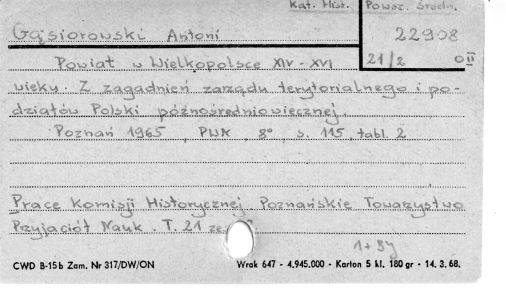 Kat. Hist. Powsz. Średn.
Gąsiorowski Antoni 22908
21/2
Powiat w Wielkopolsce XIV-XVI
wieku. Z zagadnień zarządu terytorialnego i po-
działów Polski późnośredniowiecznej
Poznań 1965, PWN, 8°, s. 115, tabl. 2
Prace Komisji Historycznej. Poznańskie Towarzystwo
Przyjaciół Nauk. T. 21
CWD B-15b Zam. Nr 317/DW/ON Wrak 647 - 4.945.000 - Karton 5 kl. 180 gr - 14. 3. 68.